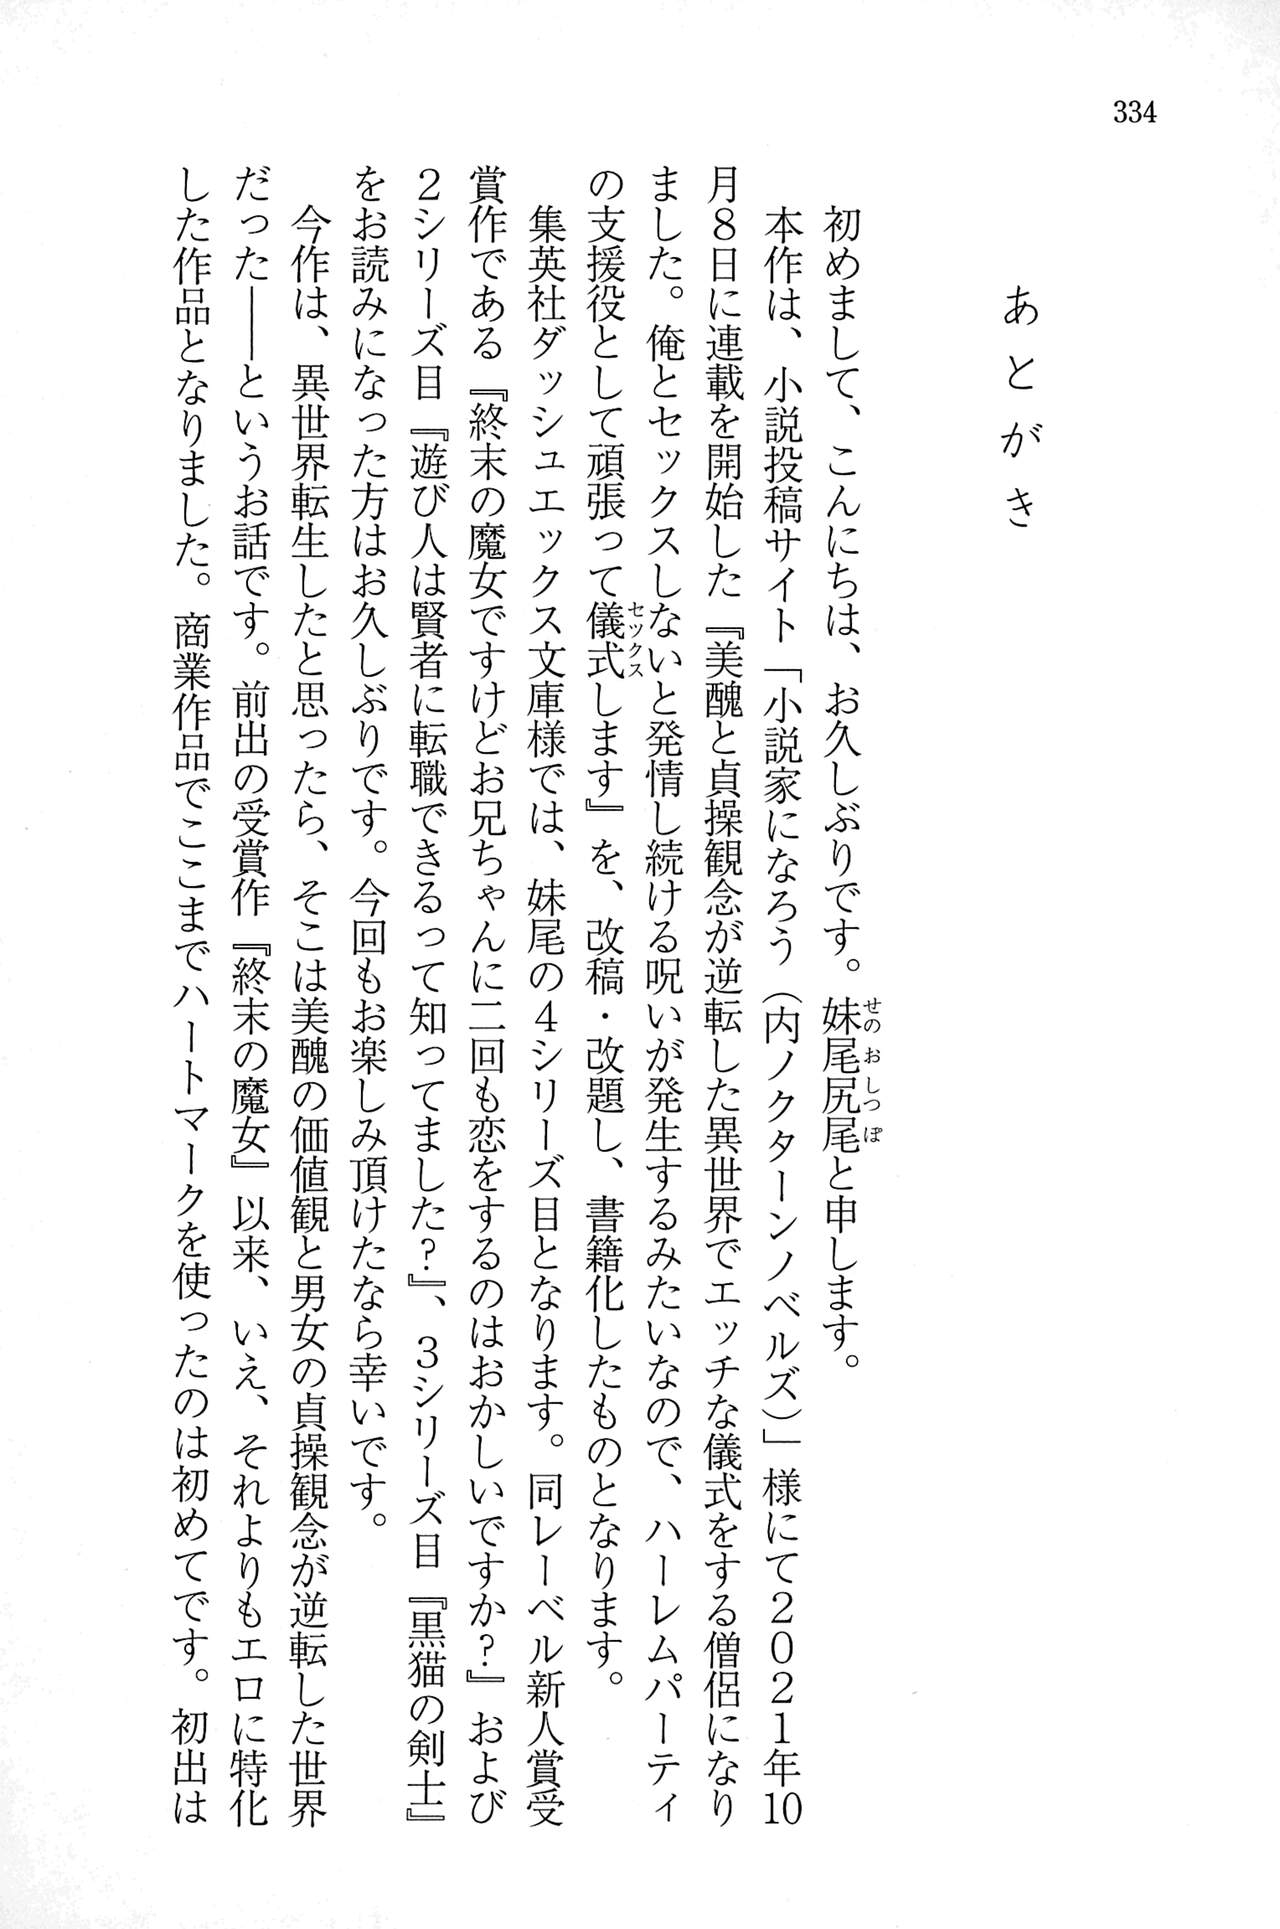 334
あとがき
初めまして、こんにちは、お久しぶりです。妹尾尻尾と申します。
せのおしっぽ
本作は、小説投稿サイト「小説家になろう（内ノクターンノベルズ）」様にて2021年10
月8日に連載を開始した『美醜と貞操観念が逆転した異世界でエッチな儀式をする僧侶になり
ました。俺とセックスしないと発情し続ける呪いが発生するみたいなので、ハーレムパーティ
の支援役として頑張って儀式します』を、改稿・改題し、書籍化したものとなります。
セックス
集英社ダッシュエックス文庫様では、妹尾の4シリーズ目となります。同レーベル新人賞受
賞作である『終末の魔女ですけどお兄ちゃんに二回も恋をするのはおかしいですか？』および
2シリーズ目『遊び人は賢者に転職できるって知ってました？』、3シリーズ目『黒猫の剣士』
をお読みになった方はお久しぶりです。今回もお楽しみ頂けたなら幸いです。
今作は、異世界転生したと思ったら、そこは美醜の価値観と男女の貞操観念が逆転した世界
だった――というお話です。前出の受賞作『終末の魔女』以来、いえ、それよりもエロに特化
した作品となりました。商業作品でここまでハートマークを使ったのは初めてです。初出は